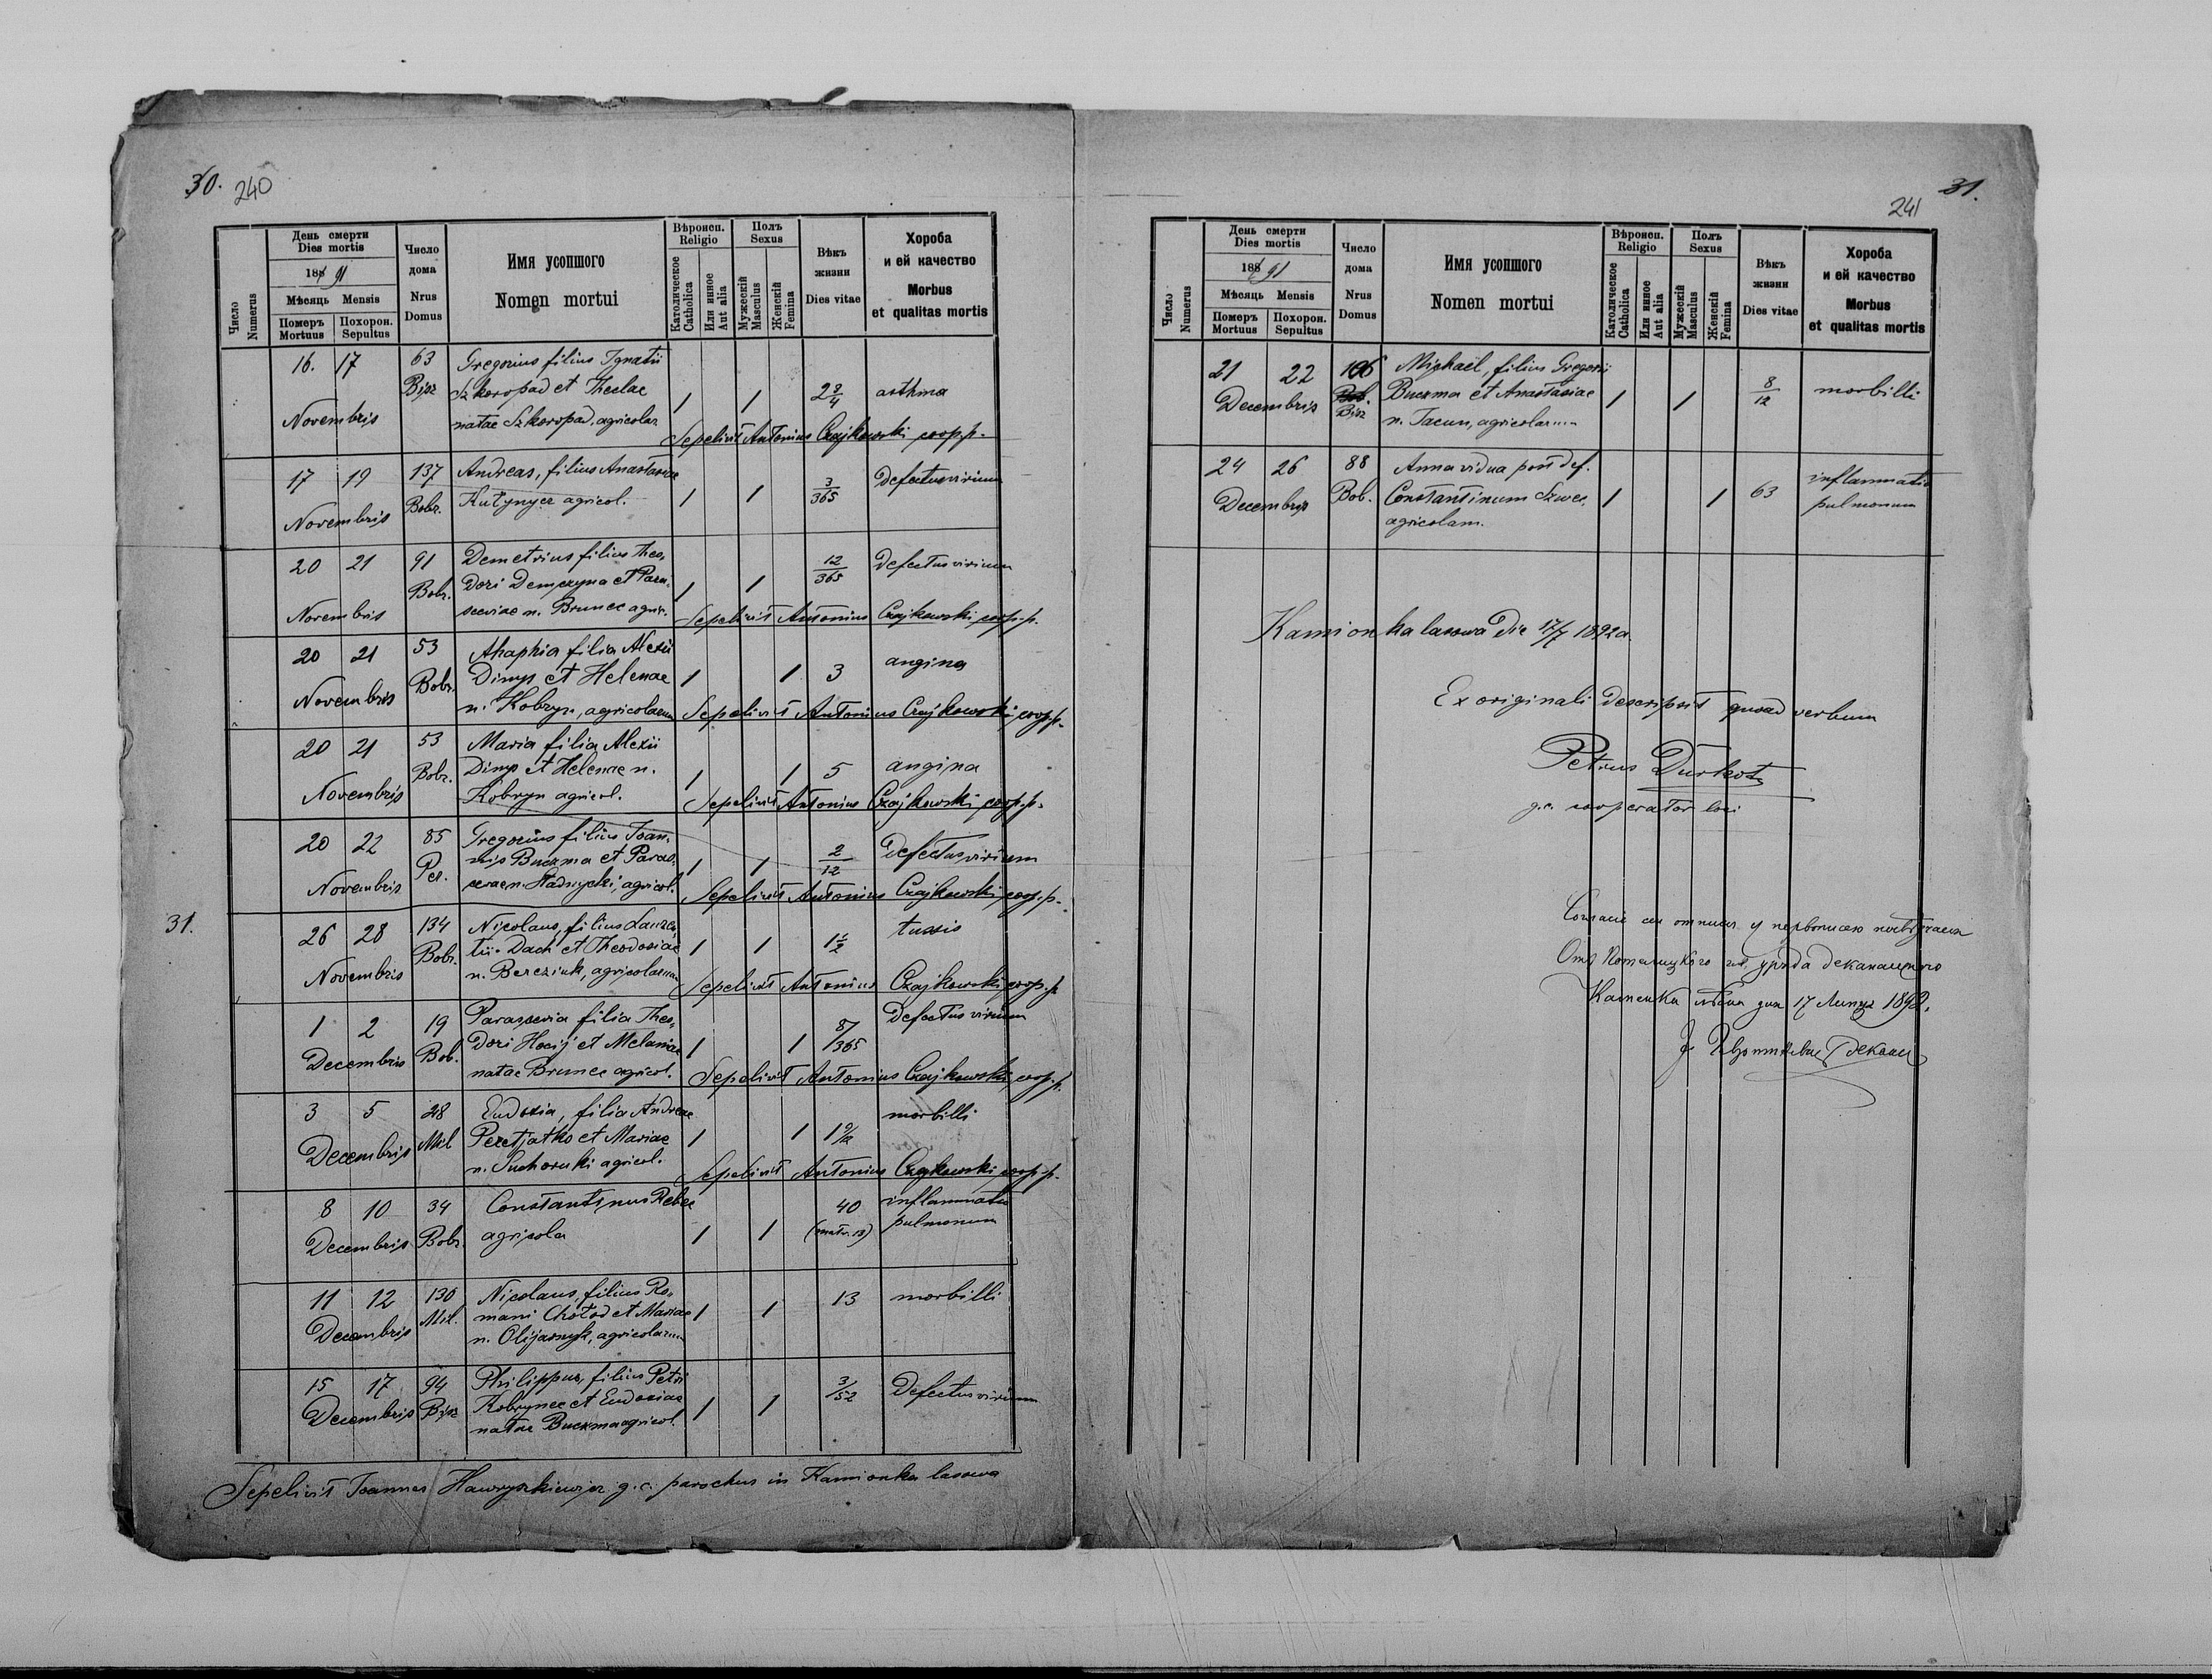 30. 240
Число Numerus
День смерти
Dies mortis
188 91
Мѣсяць Mensis
Померъ Mortuus
Похорон. Sepultus
Число дома
Nrus Domus
Имя усопшого
Nomen mortui
Вѣроисп. Religio
Католическое Catholica
Или инное Aut alia
Полъ Sexus
Мужескій Masculus
Женскій Femina
Вѣкъ жизни
Dies vitae
Хороба и ей качество
Morbus et qualitas mortis
16. 17 63 Gregorius filius Ignatii
Bysz Szkoropad et Theclae 1 1 2 3/4 asthma
Novembris natae Szkoropad, agricolar.
Sepelivit Antonius Czajkowski coop. p.
17 19 137 Andreas, filius Anastasiae Defectus virium
Novembris Bobr. Kutynycz agricol. 1 1 3/365
20 21 91 Demetrius filius Theo-
Bobr. dori Demczyna et Para- 1 1 12/365 Defectus virium
Novembris sceviae n. Brunec agric.
Sepelivit Antonius Czajkowski coop. p.
20 21 53 Ahaphia filia Alexii
Novembris Bobr. Dimys et Helenae 1 1 3 angina
n. Kobryn, agricolarum
Sepelivit Antonius Czajkowski coop. p.
20 21 53 Maria filia Alexii
Bobr. Dimys et Helenae n. 1 1 5 angina
Novembris Kobryn agricol.
Sepelivit Antonius Czajkowski coop. p.
20 22 85 Gregorius filius Joan-
nis Buczma et Paras- 1 1 2/12 Defectus virium
Novembris ceviae n. Hadnycki, agricol.
Sepelivit Antonius Czajkowski coop. p.
31.
26 28 134 Nicolaus, filius Lauren-
Bobr. tii Dach et Theodosiae 1 1 1 1/2 tussis
Novembris n. Bereziuk, agricolarum
Sepelivit Antonius Czajkowski coop. p.
1 2 19 Parascevia filia Theo-
Decembris Bob. dori Hocij et Melaniae 1 1 8/365 Defectus virium
natae Brunec agricol.
Sepelivit Antonius Czajkowski coop. p.
3 5 28 Eudoxia, filia Andreae morbilli
Decembris Mil Peretjatko et Mariae 1 1 1 9/12
n. Suchoruki agricol.
Sepelivit Antonius Czajkowski coop. p.
8 10 34 Constantinus Rebec 40 inflammatio
Decembris Bobr. agricola 1 1 pulmonum
11 12 130 Nicolaus, filius Ro-
Decembris Mil. mani Chołod et Mariae 1 1 13 morbilli
n. Olijarnyk, agricolarum
15 17 94 Philippus, filius Petri
Decembris Bysz Kobrynec et Eudoxiae 1 1 3/52 Defectus virium
natae Buczma agricol.
Sepelivit Joannes Hawryszkiewicz g. c. parochus in Kamionka lasowa
31.
241
Число Numerus
День смерти
Dies mortis
188 91
Мѣсяць Mensis
Померъ Mortuus
Похорон. Sepultus
Число дома
Nrus Domus
Имя усопшого
Nomen mortui
Вѣроисп. Religio
Католическое Catholica
Или инное Aut alia
Полъ Sexus
Мужескій Masculus
Женскій Femina
Вѣкъ жизни
Dies vitae
Хороба и ей качество
Morbus et qualitas mortis
21 22 106 Michaël, filius Gregorii
Decembris Bob. Bysz Buczma et Anastasiae 1 1 8/12 morbilli
n. Jacun, agricolarum
24 26 88 Anna vidua post def. inflammatio
Decembris Bob. Constantinum Szwec, 1 1 63 pulmonum
agricolam.
Kamionka lasowa die 17/7 1892 a.
Ex originali descripsit quoad verbum
Petrus Durkot
g. c. cooperator loci
урядa деканального
Каменка дня 17 Липця 1892.
декан